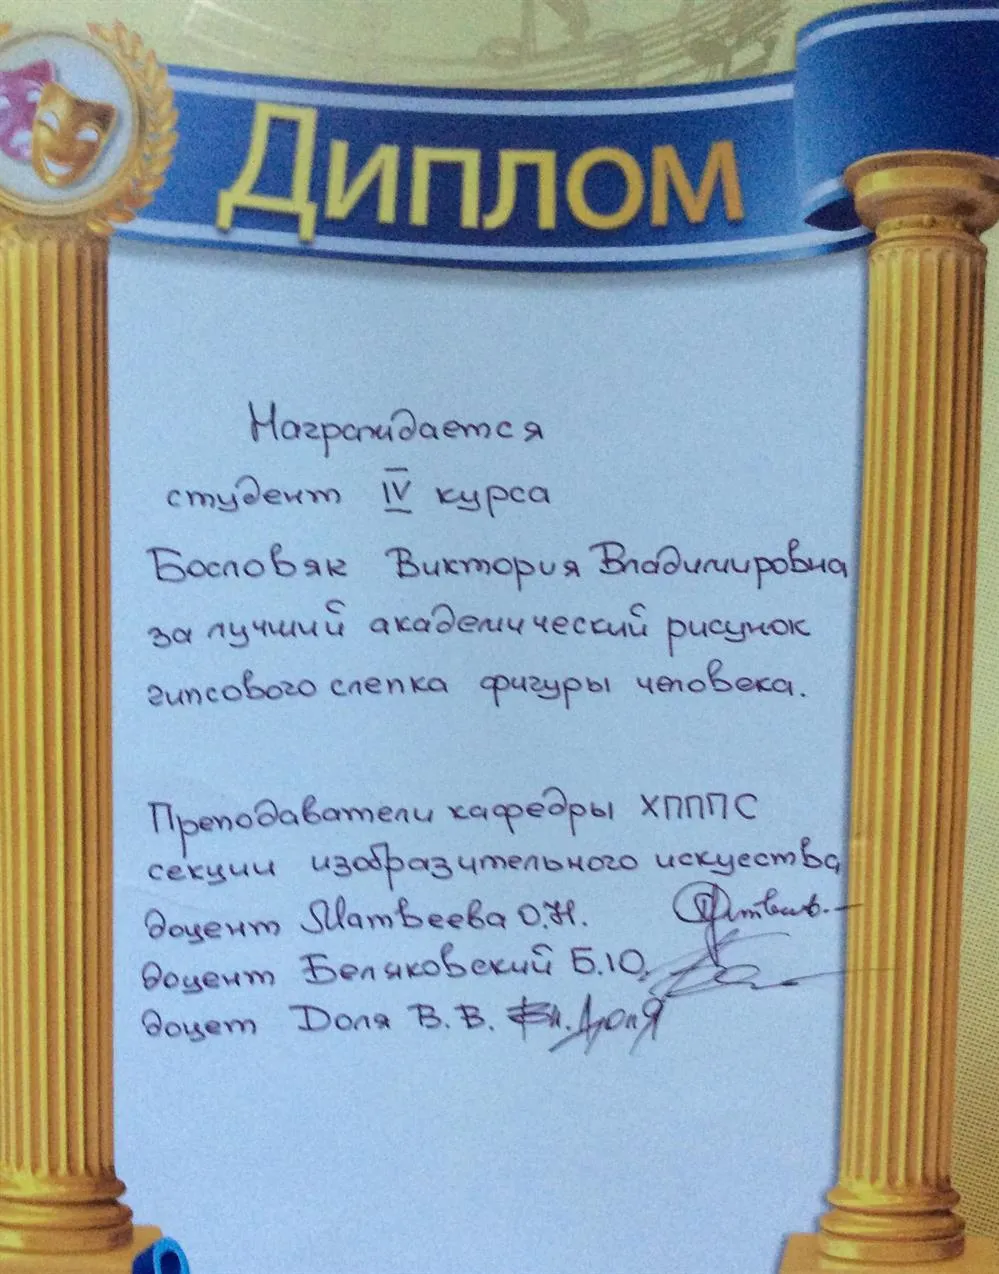 Диплом
Награждается
студент IV курса
Бословяк Виктория Владимировна
за лучший академический рисунок
гипсового слепка фигуры человека.
Преподаватели кафедры ХПППС
секции изобразительного искуества
доцент Матвеева О.Н.
доцент Беляковский Б.Ю.
доцет Доля В.В. Вл. Доля